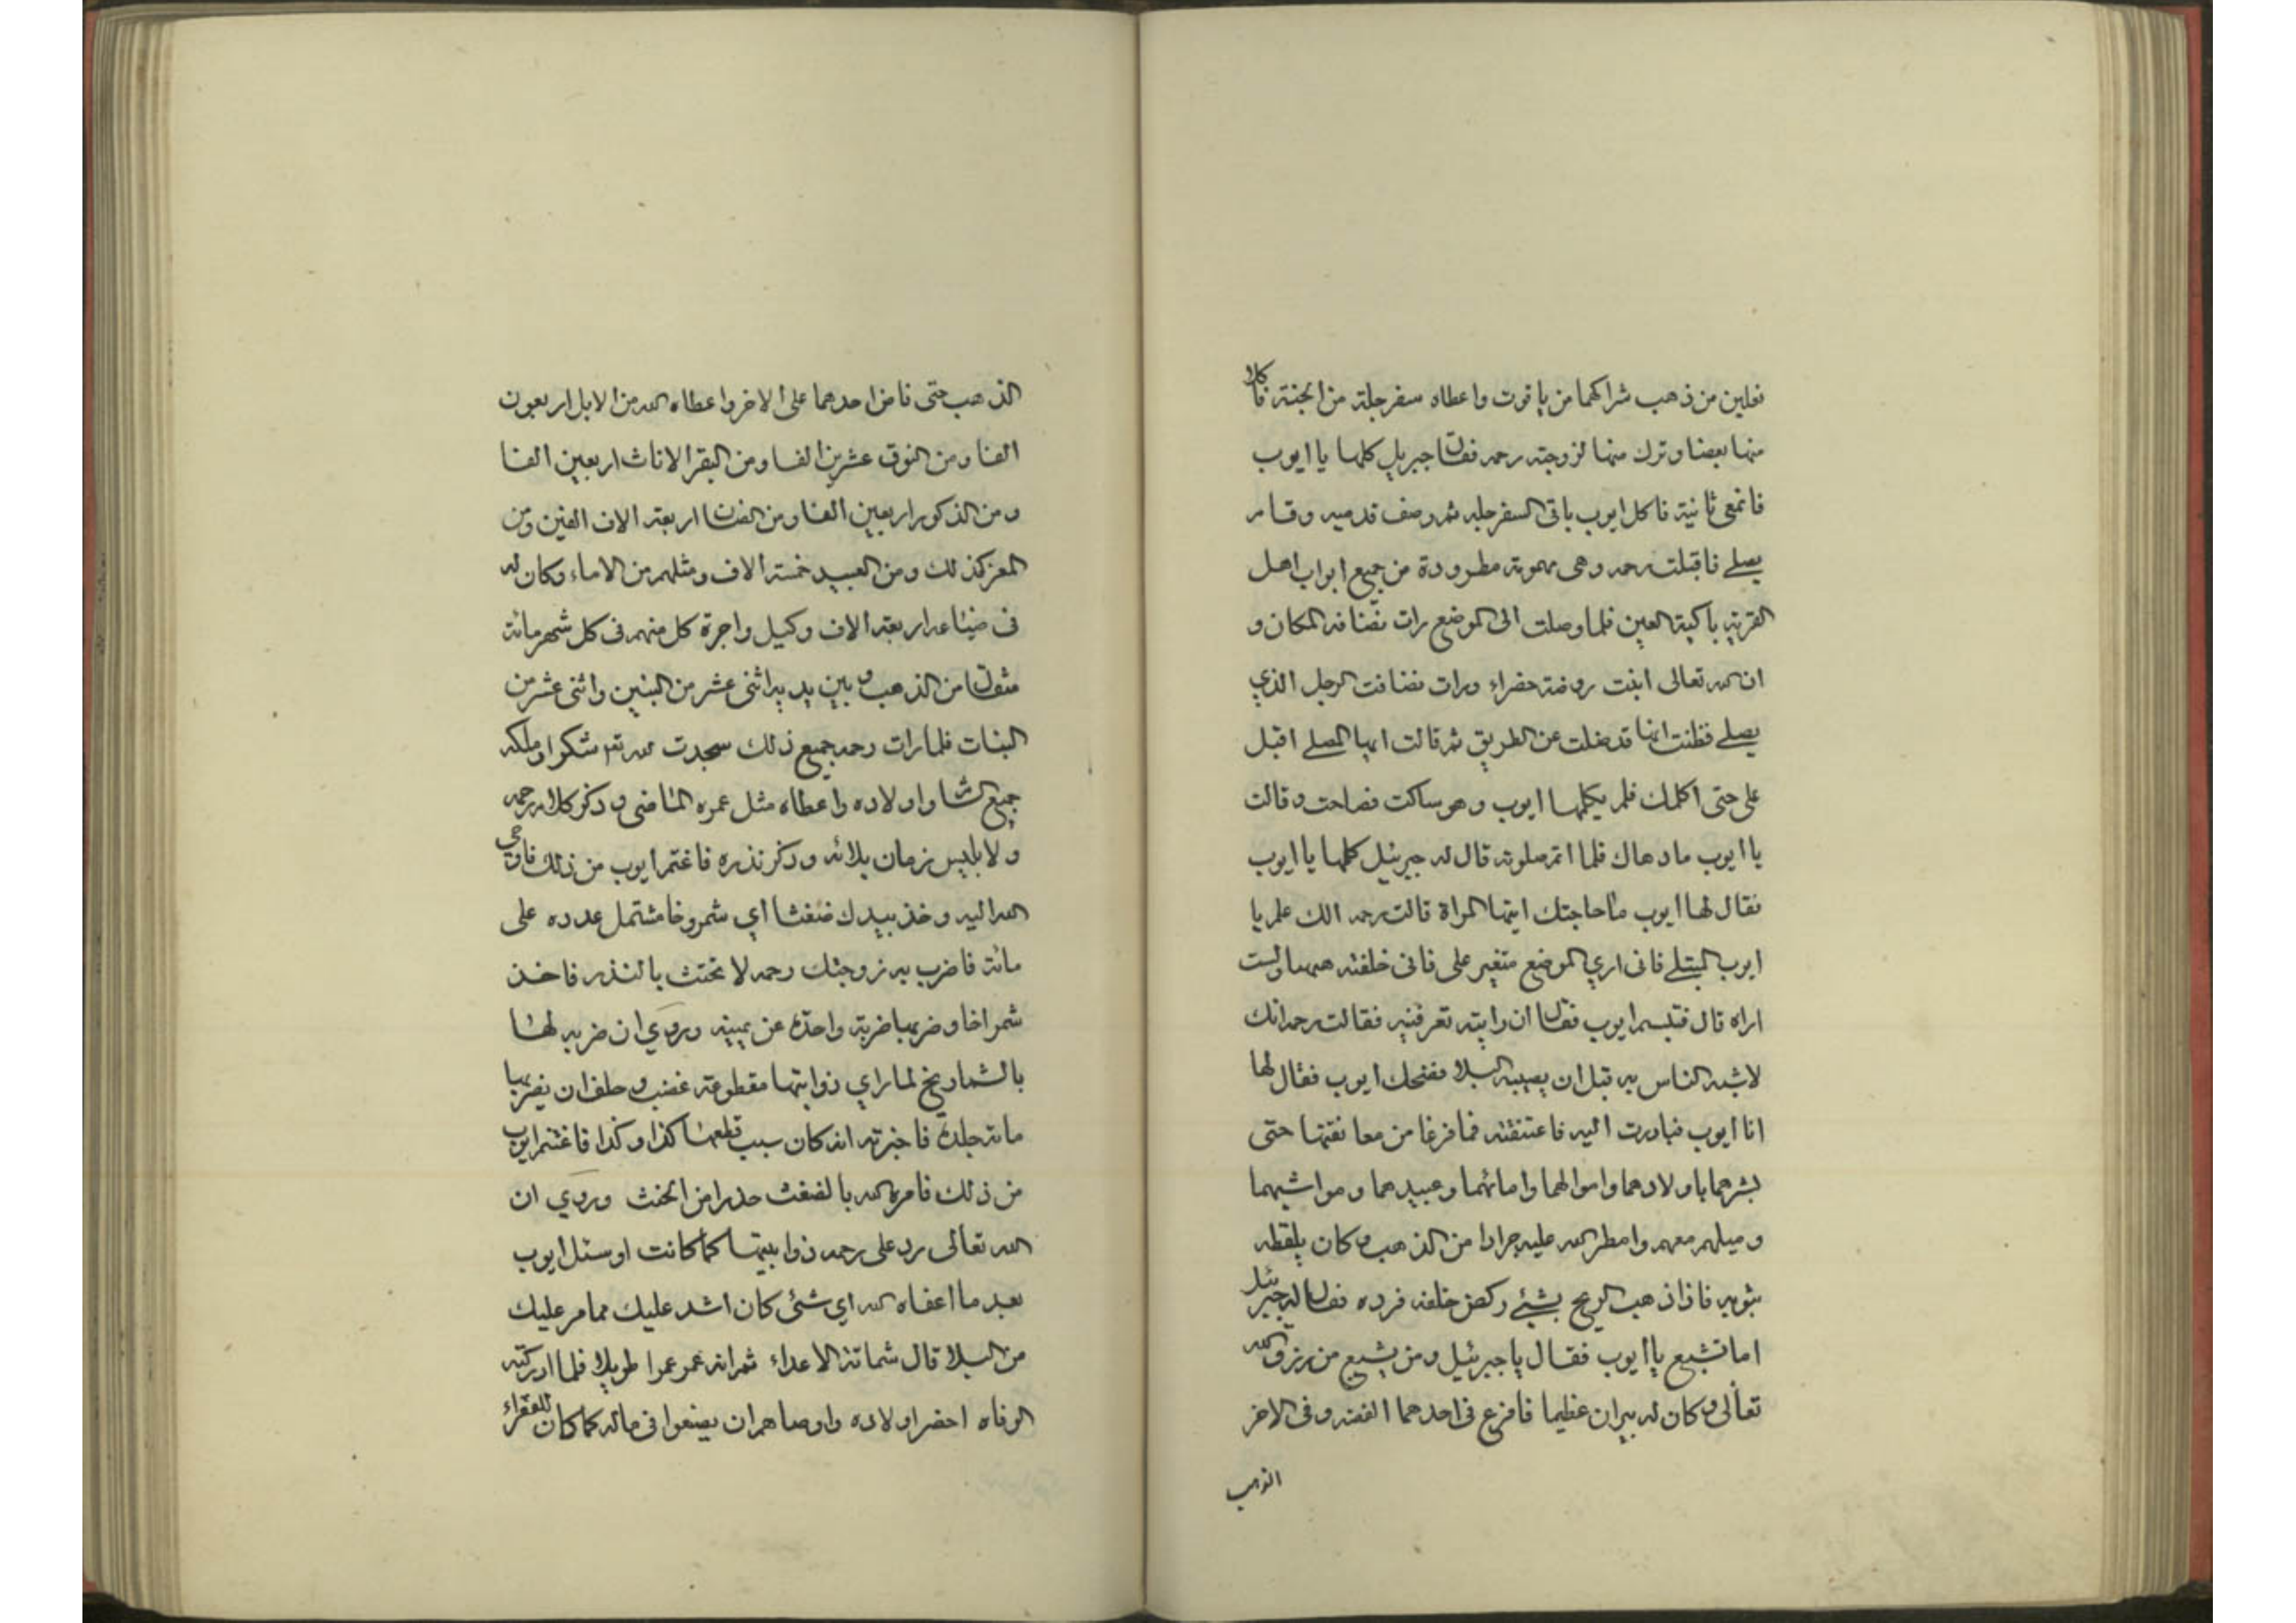 نعلين من ذهب شراكهما من ياقوت واعطاه سفرجلة من الجنة فاكل
منها بعضا وترك منها لزوجته رحمه فقال جبريل كلها يا ايوب
ثانية فاكل ايوب باقى السفرجله ثم وصف قدميه وقام
يصلے فاقبلت رحمه وهى مهمومة مطرودة من جميع ابواب اهل
القرية باكية العين فلما وصلت الى الموضع رات المكان و
ان الله تعالى انبت روضة خضراء ورات الرجل الذي
يصلے فظنت انها قد ضلت عن الطريق ثم قالت ايها المصلے اقبل
على حتى اكلمك فلم يكلمها ايوب وهو ساكت فصاحت وقالت
يا ايوب ما دهاك فلما اتم صلوته قال له جبرئيل كلمها يا ايوب
فقال لها ايوب ما حاجتك ايتها المراة قالت رحمه الك علم يا
ايوب المبتلے فانى اري الموضع متغير على فانى خلفته ههنا ولست
اراه قال فتبسم ايوب فقال ان رايته تعرفنيه فقالت رحمه انك
لاشبه الناس به قبل ان يصيبه البلا فضحك ايوب فقال لها
انا ايوب فبادرت اليه فاعتنقته فما فرغا من معانقتها حتى
بشرهما باولادهما واموالهما وامائهما وعبيدهما ومواشيهما
ومثلهم معهم وامطر الله عليه جرادا من الذهب وكان يلقطه
بثوبه فاذا ذهب الريح بشئے ركض خلفه فرده فقال له جبرئيل
اما تشبع يا ايوب فقال يا جبرئيل ومن يشبع من رزق الله
تعالى وكان له بيران عظيما فافرغ فى احدهما الفضه وفى الاخر
الذهب
الذهب حتى فاض احدهما على الاخر واعطاه الله من الابل اربعون
الفا ومن النوق عشرين الفا ومن البقر الاناث اربعين الفا
ومن الذكور اربعين الفا ومن الضان اربعة الاف الفين ومن
المعز كذلك ومن العبيد خمسة الاف ومثلهم من الاماء وكان له
فى ضياعه اربعة الاف وكيل واجرة كل منهم فى كل شهر مائة
مثقال من الذهب وبين يديه اثنى عشر من البنين واثنى عشر من
البنات فلما رات رحمه جميع ذلك سجدت لله تع شكرا وملكه
جميع الشا واولاده واعطاه مثل عمره الماضى وذكر كلام رحمه
ولابليس زمان بلائه وذكر نذره فاغتم ايوب من ذلك فاوحي
الله اليه وخذ بيدك ضغثا اي شمروخا مشتمل عدده على
مائة فاضرب به زوجتك رحمه لا تحنث بالنذر فاخذ
شمراخا وضربها ضربة واحدة عن يمينه وروي ان ضربه لها
بالشماريخ لما راي ذوابتها مقطوعة غضب وحلف ان يضربها
مائة جلدة فاخبرته انه كان سبب قطعها كذا وكذا فاغتم ايوب
من ذلك فامره الله بالضغث حذرا من الحنث وروي ان
الله تعالى رد على رحمه ذوابيتها كما كانت اوسئل ايوب
بعد ما اعفاه الله اي شئى كان اشد عليك مما مر عليك
من البلا قال شماتة الاعداء ثم انه عمر عمرا طويلا فلما ادركته
الوفاه احضر اولاده واوصاهم ان يصنعوا فى ماله كما كان للفقراء